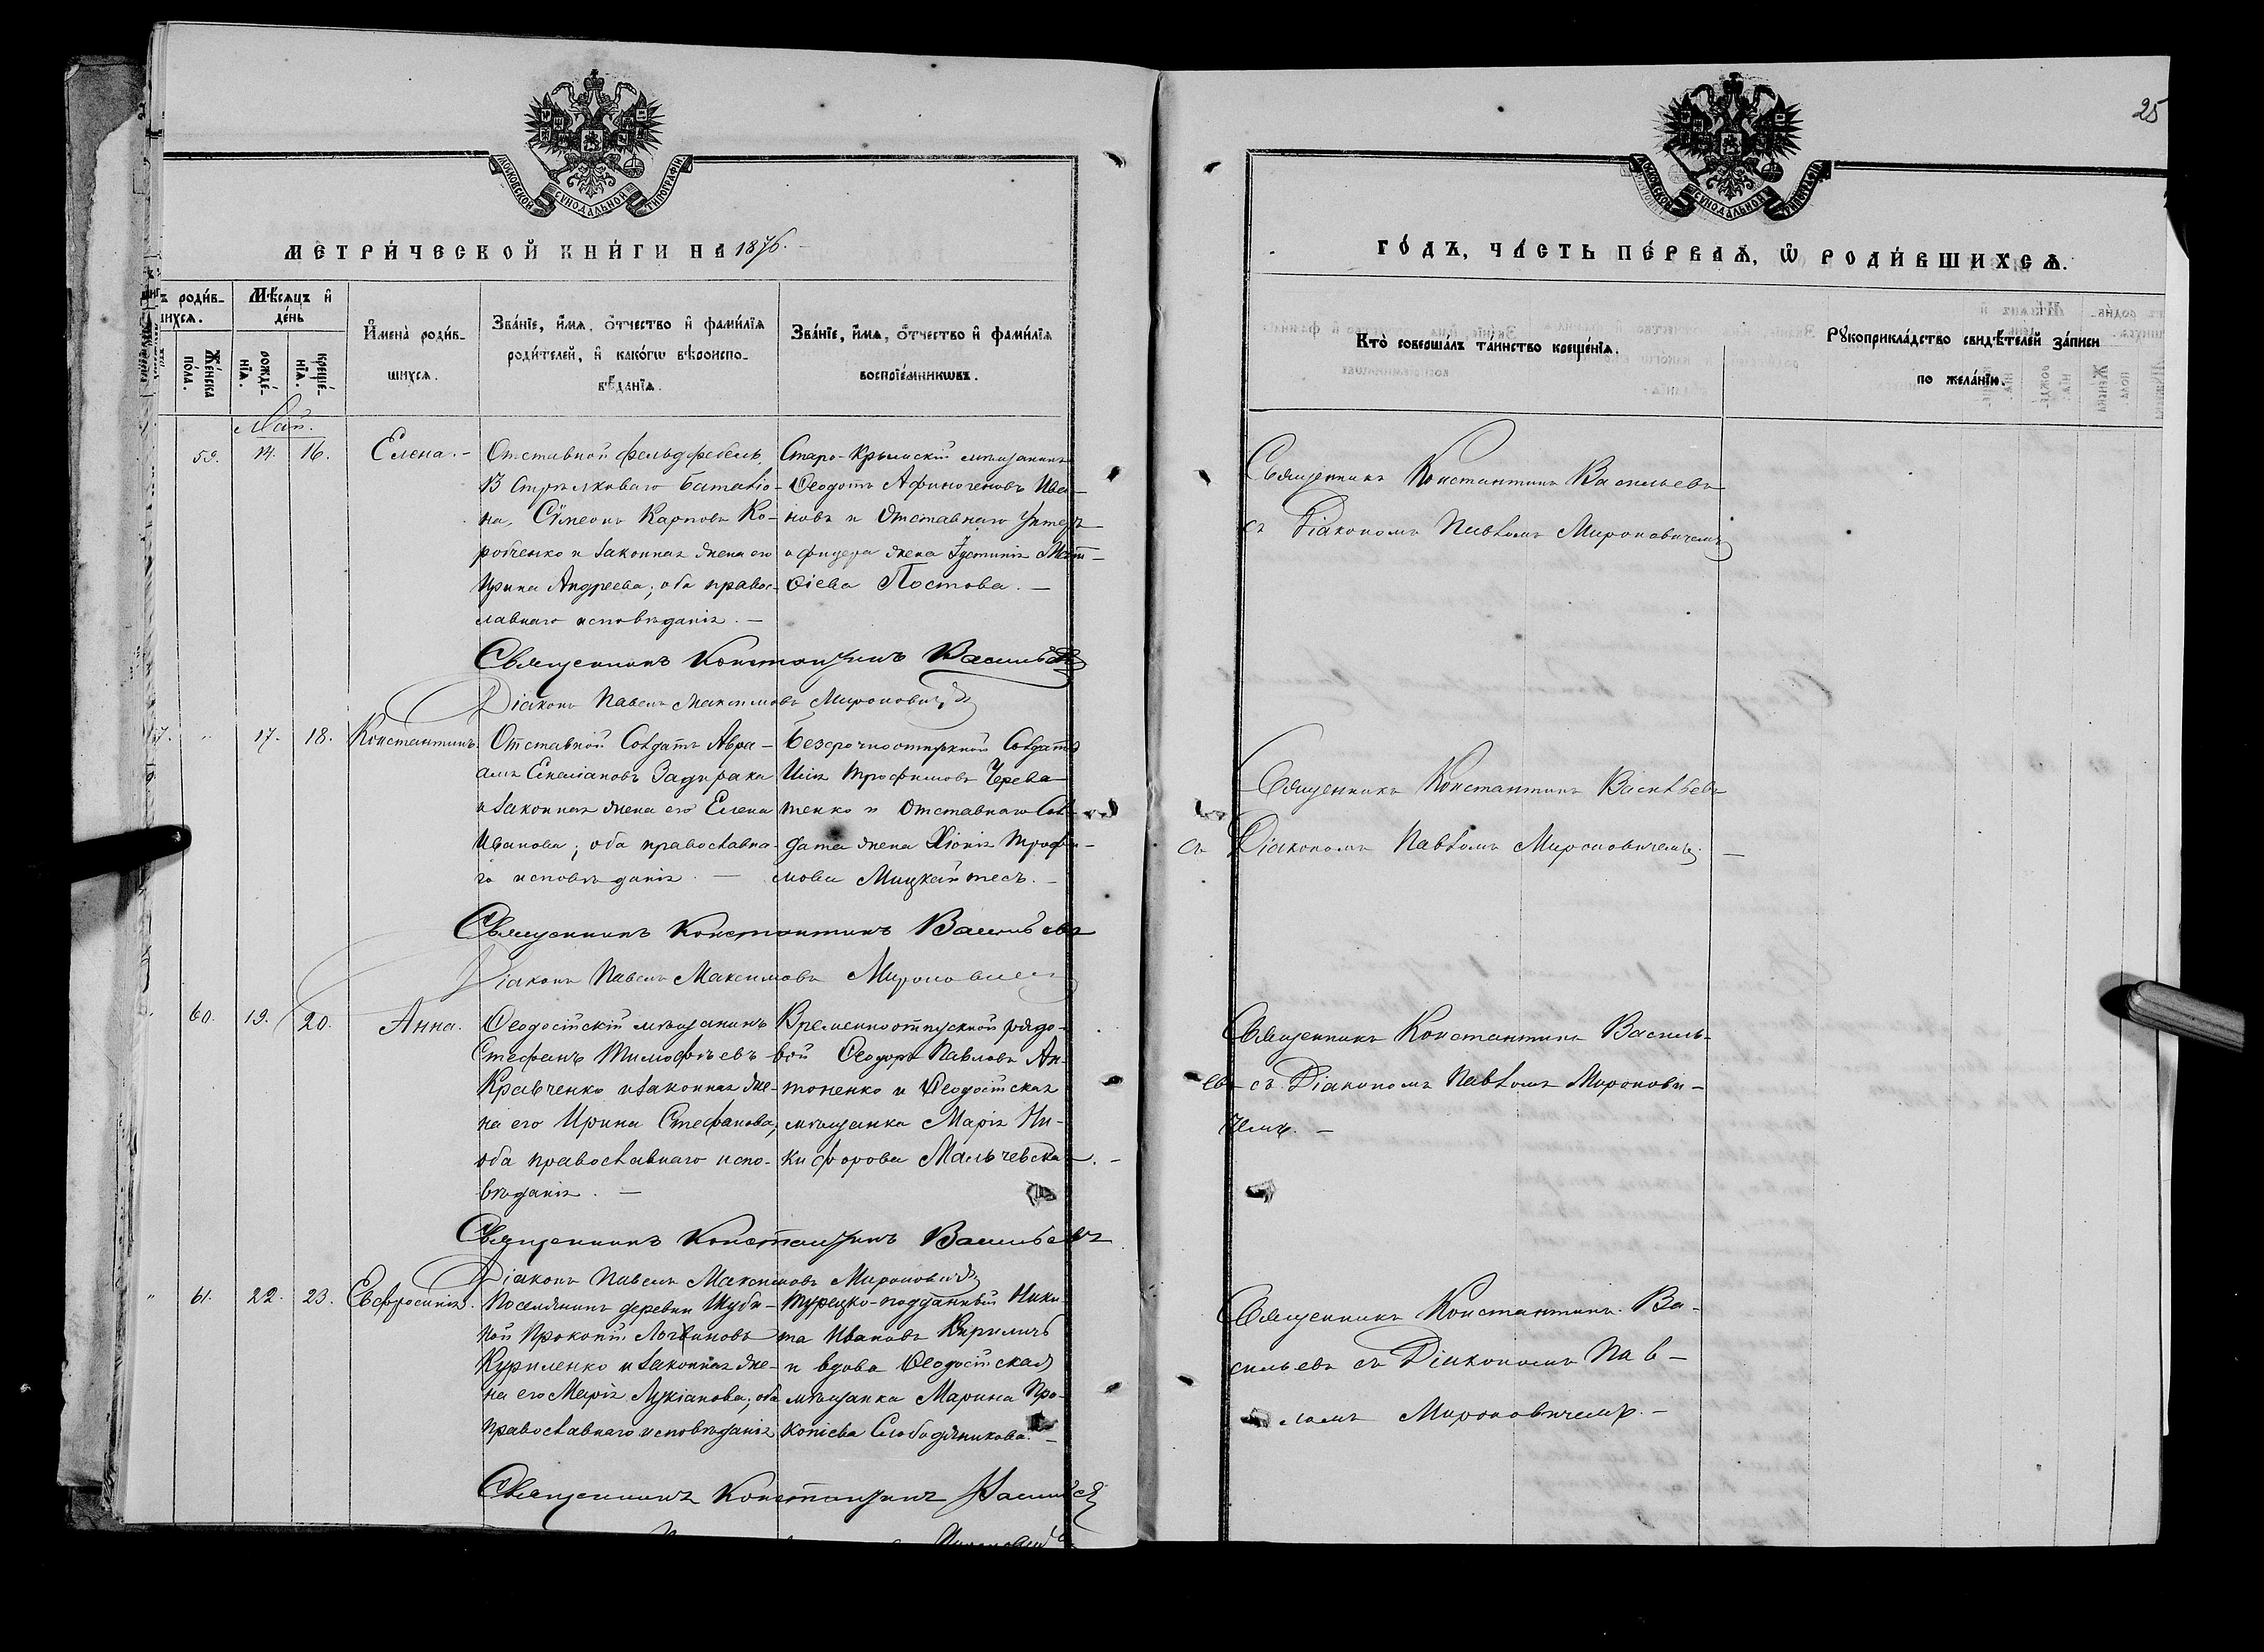 МОСКОВСКОЙ СѴНОДАЛЬНОЙ ТИПОГРАФІИ
МЕТРИ́ЧЕСКОЙ КНИ́ГИ НА 1876.
ъ роди́в-
шихсѧ.
Же́нска по́ла.
Мѣ́сѧцъ и҆ де́нь
рожде́-нїѧ.
креще́-нїѧ.
И҆мена̀ роди́в-
шихсѧ.
Зва́нїе, и҆́мѧ, ѻ҆́тчество и҆ фами́лїѧ
роди́телей, и҆ како́гѡ вѣроиспо-
вѣ́данїѧ.
Зва́нїе, и҆́мѧ, ѻ҆́тчество и҆ фами́лїѧ
воспрїе́мникѡвъ.
Май.
59. 14. 16. Елена. -
Отставной фельдфебель
В Стрѣлковаго баталіо-
на, Сѵмеонъ Карповъ Ко-
робченко и законная жена его
Ирина Андреева; оба правос-
лавнаго исповѣданія. —
Старо-Крымскій мѣщанинъ
Ѳеодотъ Афиногеновъ Ива-
новъ и Отставнаго Унтеръ
офицера жена Іустинія Матѳ-
ѳіева Постова. —
Священникъ Константинъ Васильевъ
Діаконъ Павелъ Максимовъ Мироновичъ
7. " 17. 18. Константинъ.
Отставной Солдатъ Авра-
амъ Емеліановъ Задирака
и законная жена его Елена
Иванова; оба православна-
го исповѣданія. —
Безсрочноотпускной Солдатъ
Илія Трофимовъ Черева-
тенко и Отставнаго Сол-
дата жена Хіонія Трофи-
мова Мицкайтесъ. —
Священникъ Константинъ Васильевъ
Діаконъ Павелъ Максимовъ Мироновичъ
60. 19. 20. Анна.
Ѳеодосійскій мѣщанинъ
Стефанъ Тимофѣевъ
Кравченко и законная же-
на его Ирина Стефанова;
оба православнаго испо-
вѣданія. —
Временноотпускной рядо-
вой Ѳеодоръ Павловъ Ан-
тоненко и Ѳеодосійская
мѣщанка Марія Ни-
кифорова Мальчевска. -
Священникъ Константинъ Васильевъ
Діаконъ Павелъ Максимовъ Мироновичъ
" 61. 22. 23. Евфросинія.
Поселянинъ деревни Шуби-
ной Прокопій Логвиновъ
Куриленко и законная же-
на его Марія Лукіанова; оба
православнаго исповѣданія
Турецко-подданный Ники-
та Ивановъ Кириличъ
и вдова Ѳеодосійская
мѣщанка Марина Про-
копіева Слободяникова. —
Священникъ Константинъ Васильевъ
25
МОСКОВСКОЙ СѴНОДАЛЬНОЙ ТИПОГРАФІИ
ГО́ДЪ, ЧА́СТЬ ПЕ́РВАѦ, Ѡ҆ РОДИ́ВШИХСѦ.
Кто̀ соверша́лъ та́инство креще́нїѧ.
Рꙋкоприкла́дство свидѣ́телей за́писи
по жела́нїю.
Священникъ Константинъ Васильевъ
съ Діакономъ Павломъ Мироновичемъ
Священникъ Константинъ Васильевъ
съ Діакономъ Павломъ Мироновичемъ. —
Священникъ Константинъ Василь-
евъ съ Діакономъ Павломъ Миронови-
чемъ. —
Священникъ Константинъ Ва-
сильевъ съ Діакономъ Пав-
ломъ Мироновичемъ. —